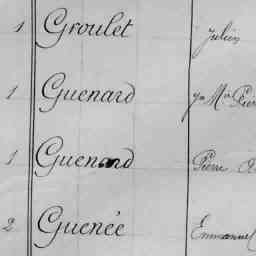 1 Groulet Julien
1 Guenard
1 Guenard Pierre
2 Guenée Emmanuel